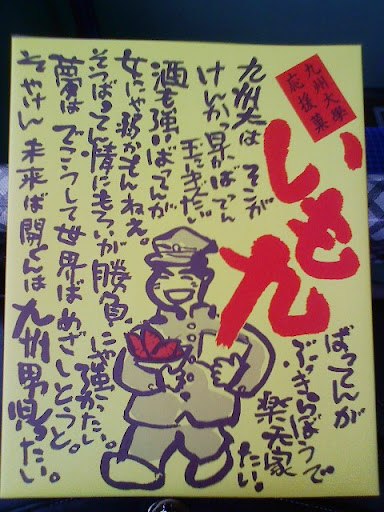 九州大學
応援菓
いも九
ばってんが
ぶっきらぼうで
楽天家
たい。
九州大は そこが
けんか早かばってん 玉にきずたい
酒も強いばってんが
女にゃ弱かもんねえ。
そつばってん情にもろいが勝負にゃ強かたい。
夢はでこうして世界ばめざしとうと。
そやけん未来ば開くんは九州男児たい。